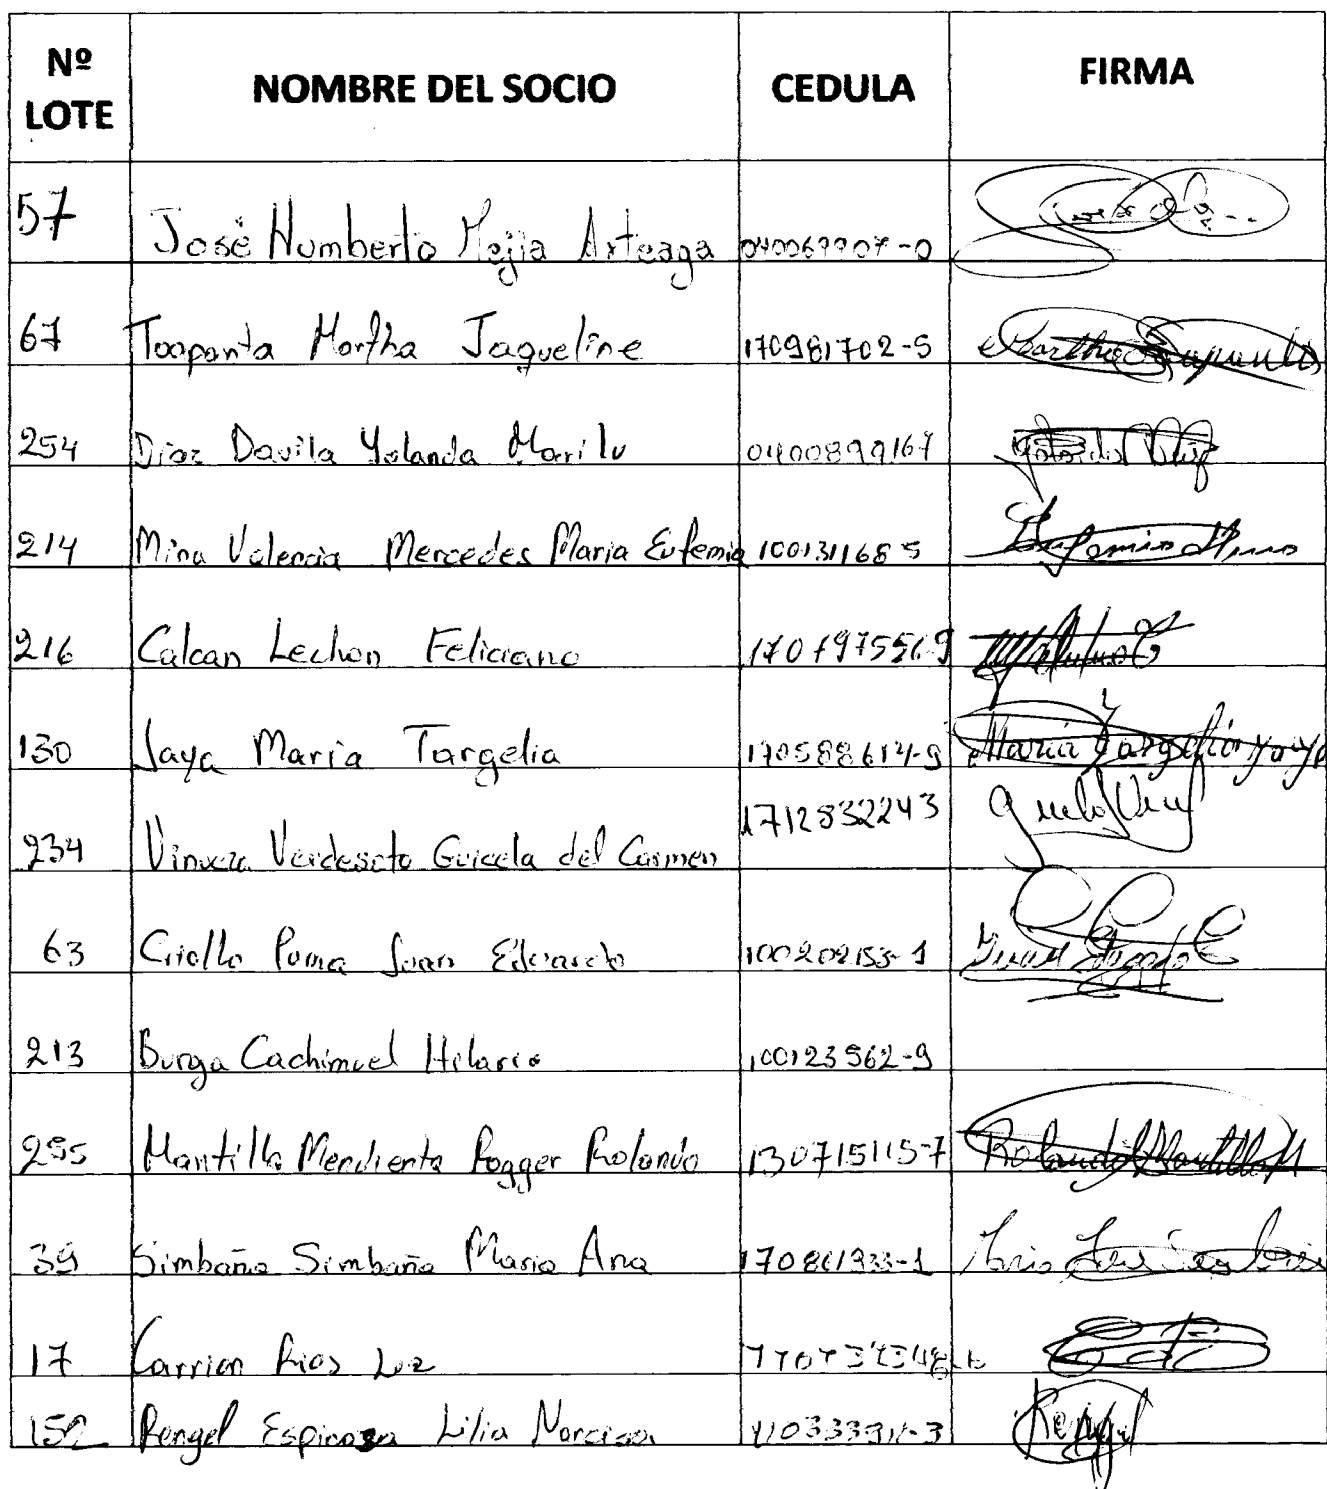 Nº LOTE NOMBRE DEL SOCIO CEDULA FIRMA
57 José Humberto Mejia Arteaga 040069907-0
67 Toapanta Martha Jaqueline 170981702-5
254 Diaz Davila Yolanda Marilu 0400899167
214 Mina Valencia Mercedes Maria Eufemia 100131168 5 Eufemia Mina
216 Calcan Lechon Feliciano
130 Jaya Maria Targelia 170588614-9 Maria Targelia Jaya
234 Vinueza Verdesoto Guicela del Carmen 1712832243
63 Criollo Puma Juan Eduardo 100202153-1
213 Burga Cachimuel Hilario 100123562-9
255 Mantilla Mendienta Rogger Rolando 130715115-7 Rolando Mantilla M
39 Simbaña Simbaña Maria Ana 170861933-1
17 Carrion Rios Luz
152 Rengel Espinoza Lilia Narcisa Rengel